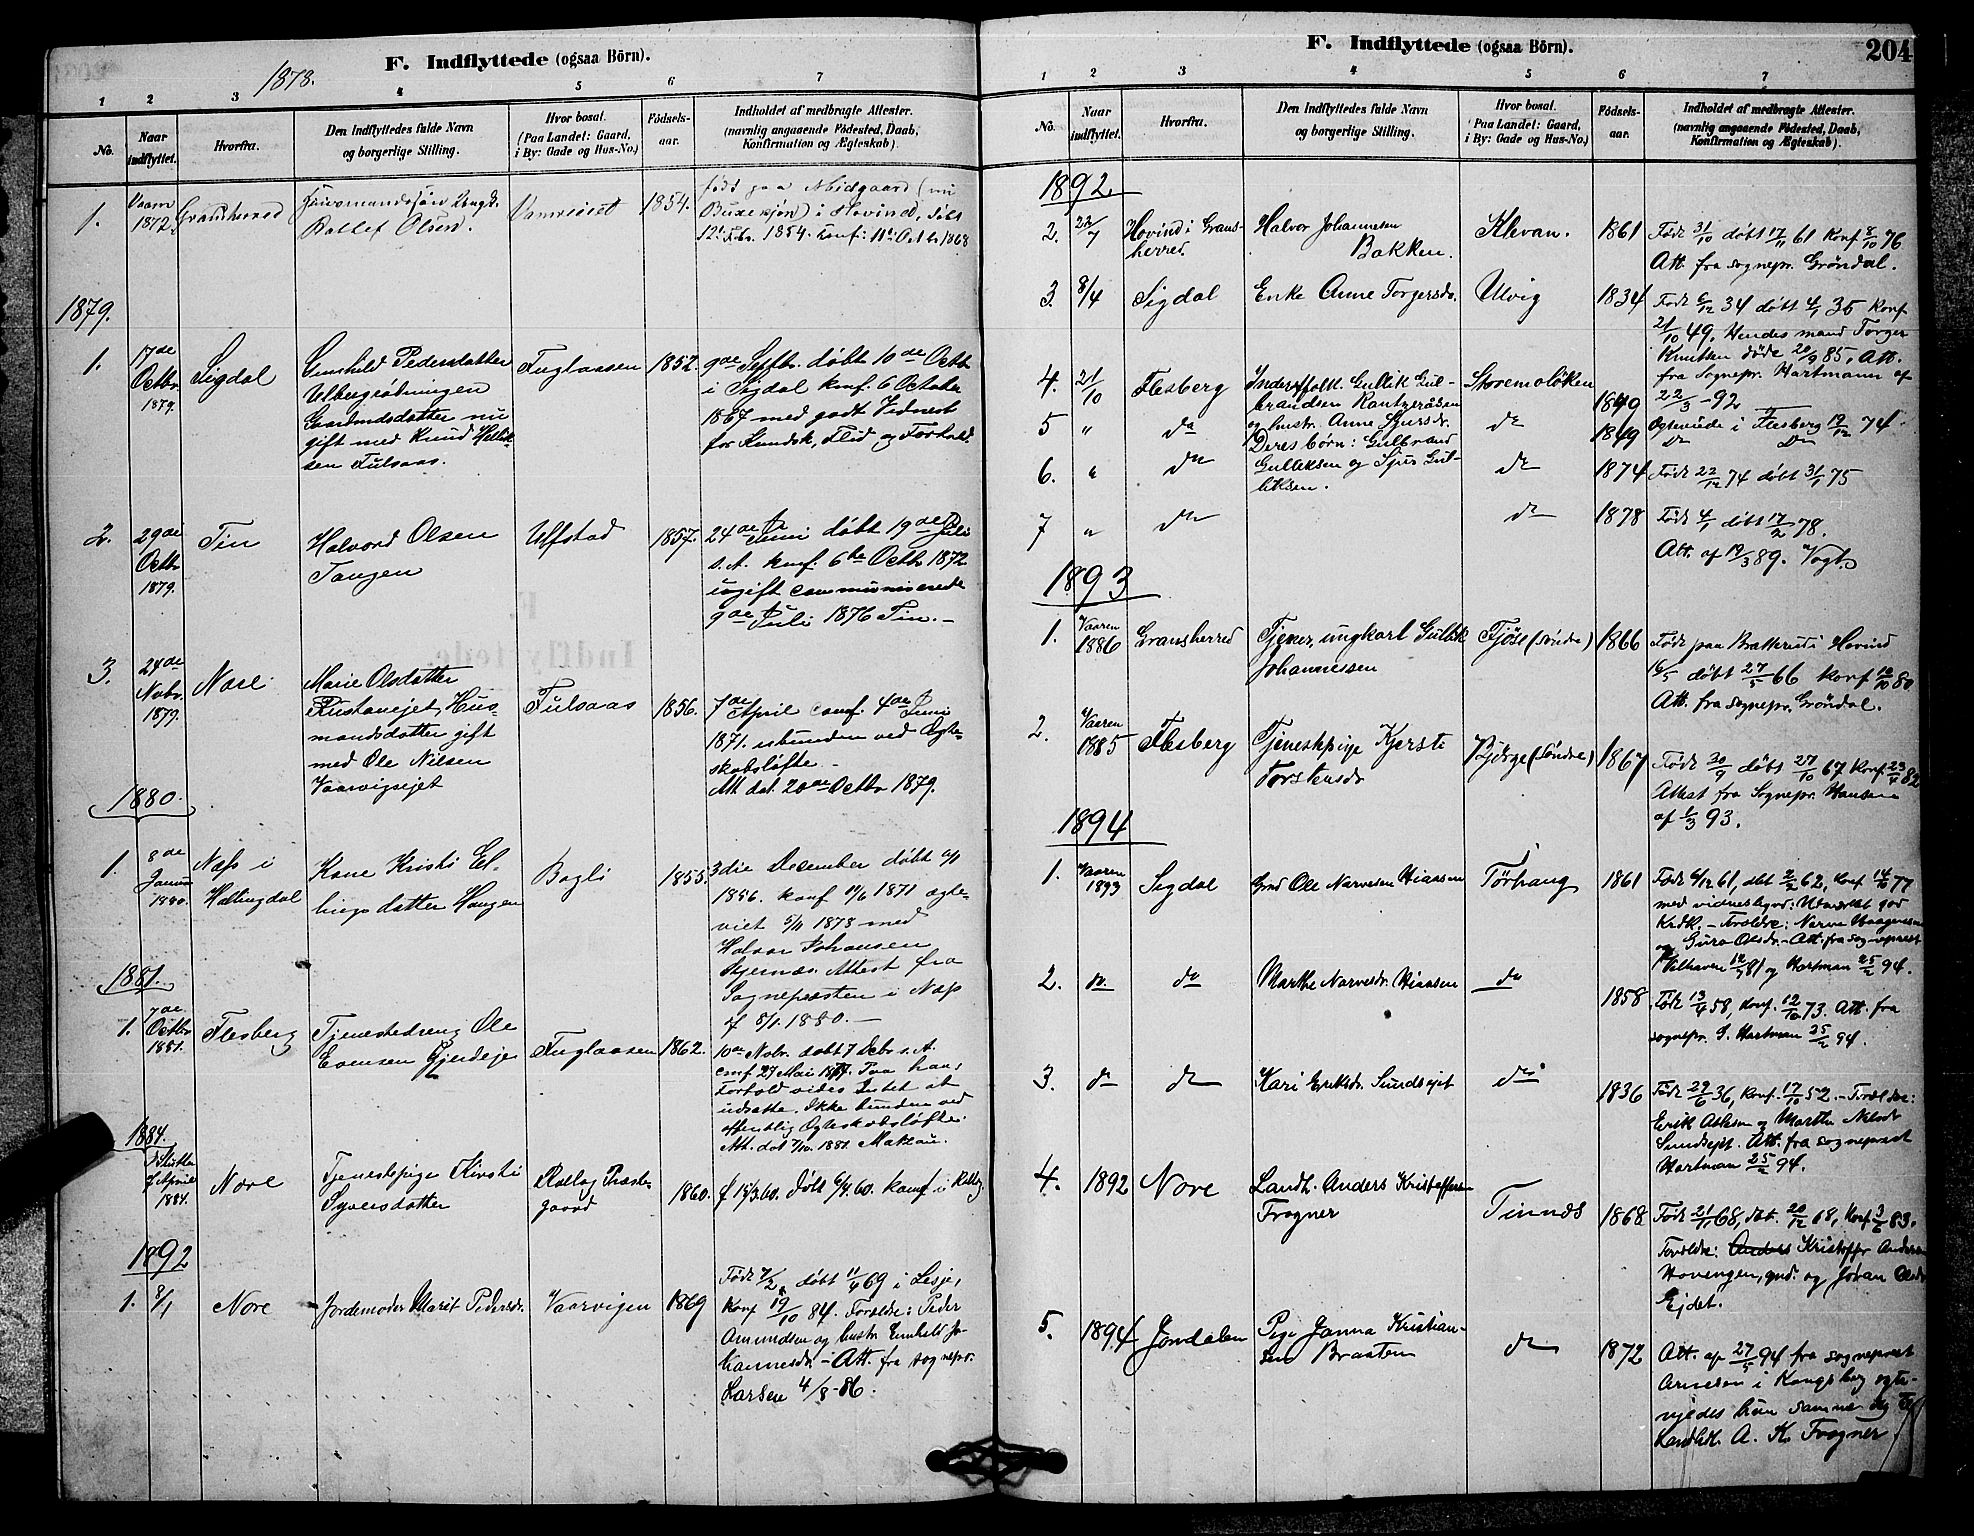 F. Indflyttede (ogsaa Börn).
1878.
1 2 3 4 5 6 7
No.
Naar indflyttet.
Hvorfra.
Den Indflyttedes fulde Navn
og borgerlige Stilling.
Hvor bosat.
(Paa Landet: Gaard,
i By: Gade og Hus-No.)
Födsels-
aar.
Indholdet af medbragte Attester.
(navnlig angaaende Födested, Daab,
Konfirmation og Ægteskab).
1. Vaarn 1872 Gransherred
Ungk.
Olsen.
1854.
født paa Midgaard (nu
i Hovind, døbt
12 Febr. 1854. Conf: 11te Octbr 1868
1879.
1. 17de Octbr 1879. Sigdal
Gunhild Pedersdatter
gift med Knud
Fulsaas.
Fuglaasen 1852.
9de Septbr. døbt 10de Octbr
i Sigdal konf. 6 October
1867 med godt Vidnesb
for Kundsk, Flid og Forhold.
2. 29de Octbr 1879. Tin
Halvord Olsen
Tangen
Ulfstad 1857.
24de Juni døbt 19de Juli
s.A. konf. 6te Octbr 1872
ugift communiserede
9de Juli 1876 Tin.–
3. 24de Nobr. 1879. Nore
Marie Olsdatter
Hus-
mandsdatter gift
med Ole Nilsen
Vaarvigsejet
Fulsaas 1856.
7de April conf. 4de Juni
1871. ubunden ved Ægte-
skabsløfte –
Att. dat. 20de Octbr 1879.
1880.
1. 8de Janua 1880. Næss i Hallingdal
Kone Kristi El-
lings datter Haugen
Bagli 1855.
3die December døbt
1856. konf 1871 ægte-
viet 5/11 1878 med
Halvor Johansen
Attest fra
Sognepræsten i Næss
af 8/1. 1880.–
1881.
1. 7de Octbr 1881. Flesberg
Tjenestedreng Ole
Evensen Gjerdeje
Fuglaasen 1862.
10de Nobr. døbt 7 Debr s.A.
conf 27 Mai 1877. Paa hans
Forhold vides Intet at
udsætte. Ikke bunden ved
offentlig Ægteskabsløfte.
Att. dat 7/10. 1881.
1884.
April 1884. Nore
Tjenestpige Kirsti
Syversdatter
Rollag Præste-
gaard
1860.
f 15/3.60. Døbt 9/4.60. konf i Rollag
1892
1. 8/1 Nore
Jordemoder Marit Pedersdr.
Vaarvigen 1869
Født 7/2 døbt 11/4 69 i Lesje,
Konf 19/10 84. Foreldre: Peder
Amundsen og hustr. Jo-
hannesdr. – Att. fra sognepr.
Larsen 4/8-86.
F. Indflyttede (ogsaa Börn).
204
1 2 3 4 5 6 7
No.
Naar
indflyttet.
Hvorfra.
Den Indflyttedes fulde Navn
og borgerlige Stilling.
Hvor bosat.
(Paa Landet: Gaard,
i By: Gade og Hus-No.)
Födsels-
aar.
Indholdet af medbragte Attester.
(navnlig angaaende Födested, Daab,
Konfirmation og Ægteskab).
1892
2. 22/7 Hovind i Grans-
herred
Halvor Johannesen
Bakken.
Klevan. 1861
Født 31/10 døbt 17/11 61 Konf 8/10 76
Att. fra sognepr. Grøndal.
3. 8/4 Sigdal
Enke Anne Torgersdr.
Ulvig 1834
Født 6/12 34 døbt 4/1 35 Konf
21/10 49. Hendes mand Torger
Knutsen døde 20/9 85. Att.
fra Sognepr. Hartmann af
22/3 -92
4. 21/10 Flesberg
Inderstfolk Gullik Gul-
brandsen
og hustr. Anne Sjursdr.
Deres børn: Gulbrand
Gulliksen og Sjur Gul-
liksen.
1849
Ægteviede i Flesberg 19/12 74
5 " do do 1849 do do
6. " do do 1874
Født 22/12 74 døbt 31/1 75
7 " do do 1878
Født 4/1 døbt 17/2 78.
Att. af 19/3 89. Vogt.
1893
1. Vaaren 1886 Gransherred
Tjener, ungkarl Gullik
Johannessen
Fjøse (søndre) 1866
Født paa Bakkerud i Hovind
16/5 døbt 27/5 66 konf 10/10 80
Att. fra sognepr. Grøndal.
2. Vaaren 1885 Flesberg
Tjenestpige Kjersti
Torstensdr
Bjørge (søndre) 1867
Født 30/9 døbt 27/10 67 Konf. 23/4 82
Attest fra Sognepr. Hansen
af 1/3 93.
1894
1. Vaaren 1893 Sigdal
Grd Ole Narvesen Hiaasen
Tørhaug 1861
Født 61, døbt 2/2 62, Konf 77
med vidnesbyrd: Udmærket god
Krdk. – Foreldre: Narve
og Guro Olsdr. – Att. fra sognepræst
og Hartman 25/2 94.
2. do. do
Marthe Narvesdr. Hiaasen
do 1858
Født 13/4 58, Konf. 12/10 73. Att. fra
sognepr. S. Hartman 25/2 94.
3. do do
Kari Eriksdr. Sundsejet
do 1836
Født 29/6 36, Konf. 17/10 52. – Foreldre:
Erik og Marthe
Sundsejet. Att. fra sognepræst
Hartman 25/2 94.
4. 1892 Nore
Landh. Anders Kristoffersen
Frogner
Tinnæs 1868
Født 21/11 68, døbt. 20/12 68, Konf 3/6 83.
Foreldre: Anders Kristoffer Andersen
Hovengen, grd. og Jøran
Ejdet.
5. 1894 Jondalen
Pige Janna Kristian-
sen Braaten
do 1872
Att. af 27/5 94 fra sognepræst
Arnesen i Kongsberg ægte-
vjedes hun samme dag til
Landhdl. A. K. Frogner.